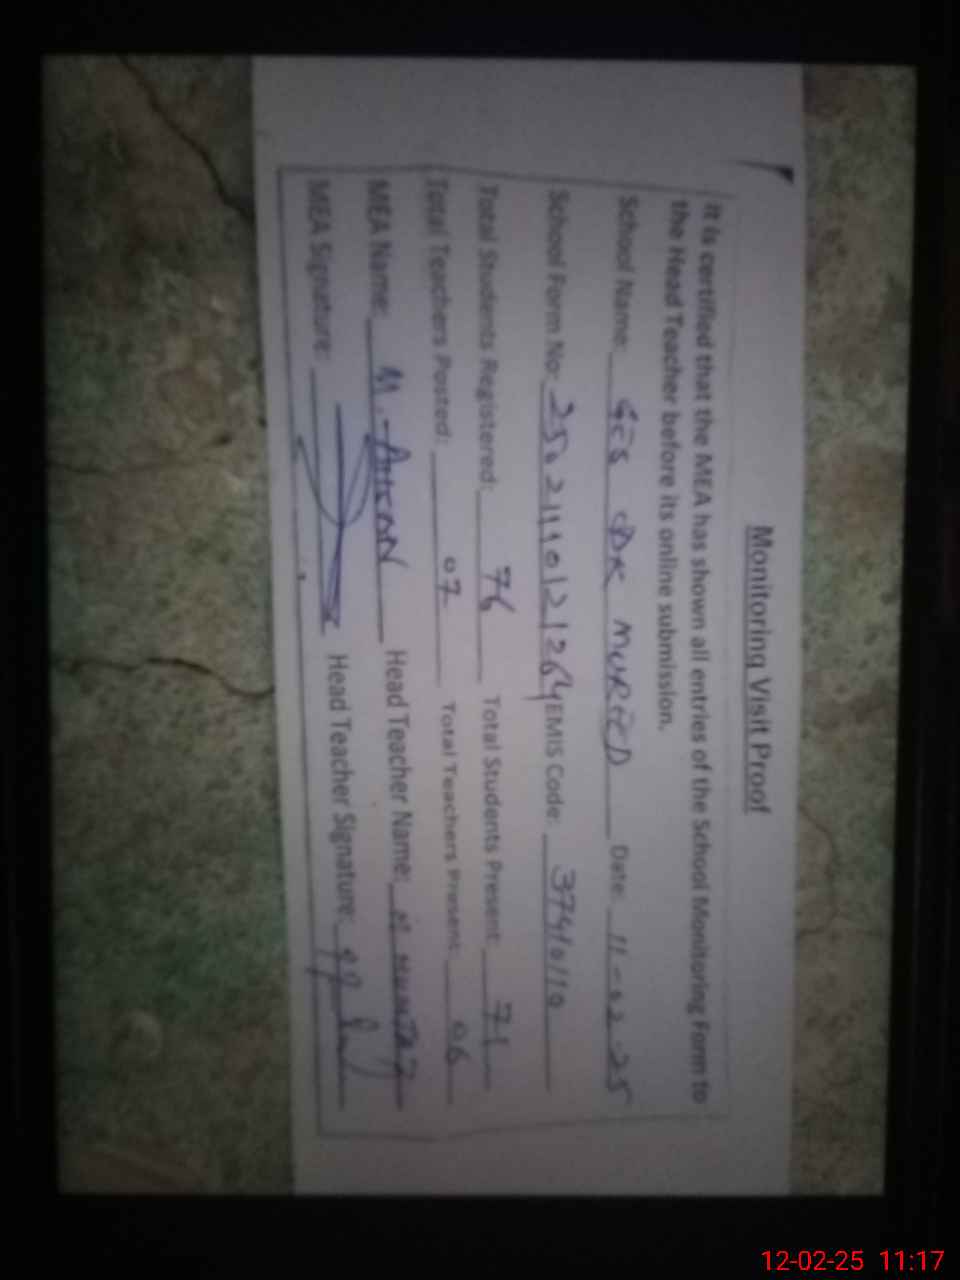 Monitoring Visit Proof
It is certified that the MEA has shown all entries of the School Monitoring Form to
the Head Teacher before its online submission.
School Name: GES DK MUREED Date: 11-02-25
School Form No: EMIS Code: 37410110
Total Students Registered: 76 Total Students Present: 71
Total Teachers Posted: 07 Total Teachers Present: 06
MEA Name: M. Head Teacher Name: M. MUMTAZ
MEA Signature: Head Teacher Signature:
12-02-25 11:17